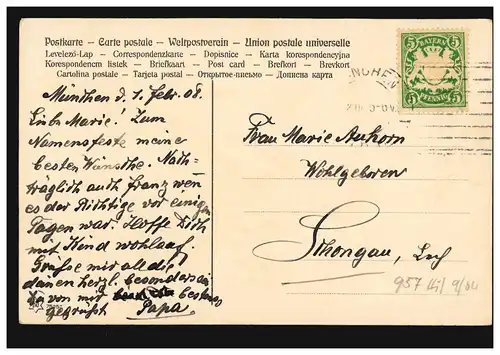 Postkarte – Carte postale – Weltpostverein – Union postale universelle
Levelező-Lap – Correspondenzkarte – Dopisnice – Karta korespondencyjna
Korespondencni listek – Briefkaart – Post card – Brefkort – Brevkort
Cartolina postale – Tarjeta postal – Открытое письмо – Дописна карта
BAYERN
5 5
5 5
PFENNIG
München d. 1. Febr. 08.
Liebe Marie! Zum
Namensfeste meine
besten Wünsche. Nach-
träglich auch Franz wen
es der Richtige vor einigen
Tagen war. Hoffe Dich
mit Kind wohlauf.
Grüße mir all die
herzl. besonders
von mir besten
gegrüßt Papa.
Frau Marie
Wohlgeboren
Schongau, Lech
957 9/04